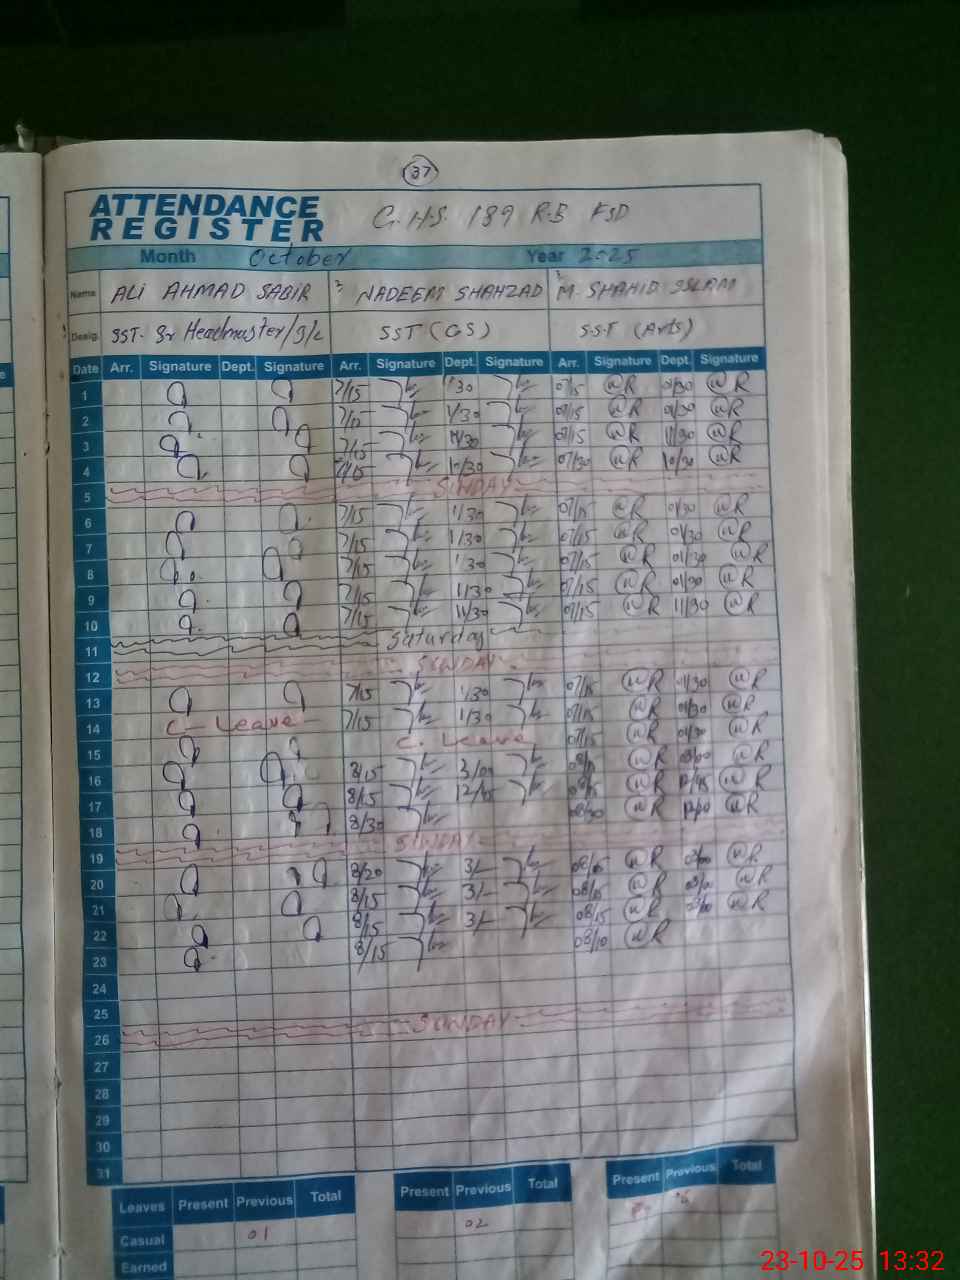 37
ATTENDANCE REGISTER G.H.S. 189 R.B FSD
Month October Year 2025
Name ALI AHMAD SABIR 2 NADEEM SHAHZAD 3 M. SHAHID ISLAM
Desig. SST- Sr Headmaster/I/C SST (GS) SST (Arts)
Date Arr. Signature Dept. Signature Arr. Signature Dept. Signature Arr. Signature Dept. Signature
1 7/15 1/30 07/15 01/30
2 7/15 1/30 07/15 01/30
3 7/15 11/30 07/15 11/30
4 7/15 10/30 07/30 10/30
5 SUNDAY
6 7/15 1/30 07/15 01/30
7 7/15 1/30 07/15 01/30
8 7/15 1/30 07/15 01/30
9 7/15 1/30 07/15 01/30
10 7/15 11/30 07/15 11/30
11 Saturday
12 SUNDAY
13 7/15 1/30 07/15 01/30
14 C- Leave 7/15 1/30 07/15 01/30
15 C. Leave 07/15 01/30
16 8/15 3/00
17 8/15 12/45
18 8/30 08/30
19 SUNDAY
20 8/20 3/- 08/15
21 8/15 3/- 08/15
22 8/15 3/- 08/15
23 8/15 08/10
24
25
26 SUNDAY
27
28
29
30
31
Leaves Present Previous Total Present Previous Total Present Previous Total
Casual 01 02
Earned
23-10-25 13:32